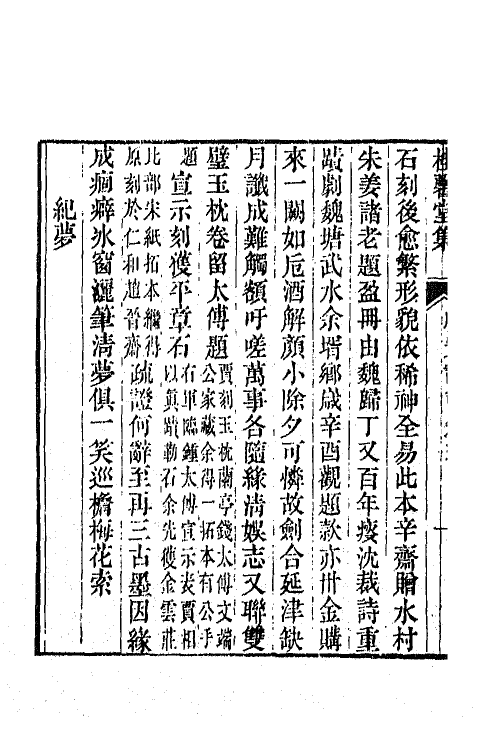 石刻後愈繁形貌依稀神全易此本辛齋贈水村
朱姜諸老題盈冊由魏歸丁又百年瘦沈裁詩重
蹟劇魏塘武水余壻鄉歲辛酉觀題款亦卅金購
來一闕如卮酒解顏小除夕可憐故劍合延津缺
月讖成難觸額吁嗟萬事各隨緣清娛志又聯雙
璧玉枕卷留太傅題賈刻玉枕蘭亭錢太傅文端公家藏余得一拓本有公手
題宣示刻獲平章石右軍臨鍾太傅宣示表賈相以真蹟勒石余先獲金雲莊
比部宋紙拓本繼得原刻於仁和趙晉齋疏證何辭至再三古墨因緣
成痼癖氷窗灑筆清夢俱一笑巡檐梅花索
紀夢